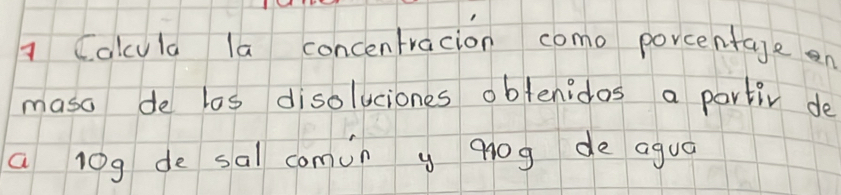 1 Calcula la concentración como porcentaje en
masa de las disoluciones obtenidas a partir de
a 10g de sal común y 90g de agua